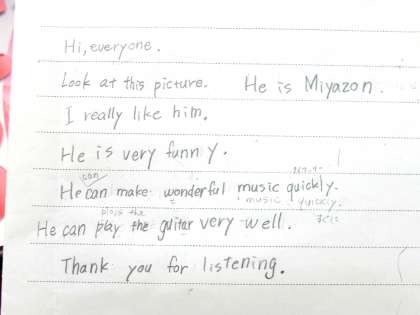 Hi, everyone.
Look at this picture. He is Miyazon.
I really like him.
He is very funny.
can
He can make wonderful music quickly.
music quickly.
plays the
He can play the guitar very well.
Thank you for listening.